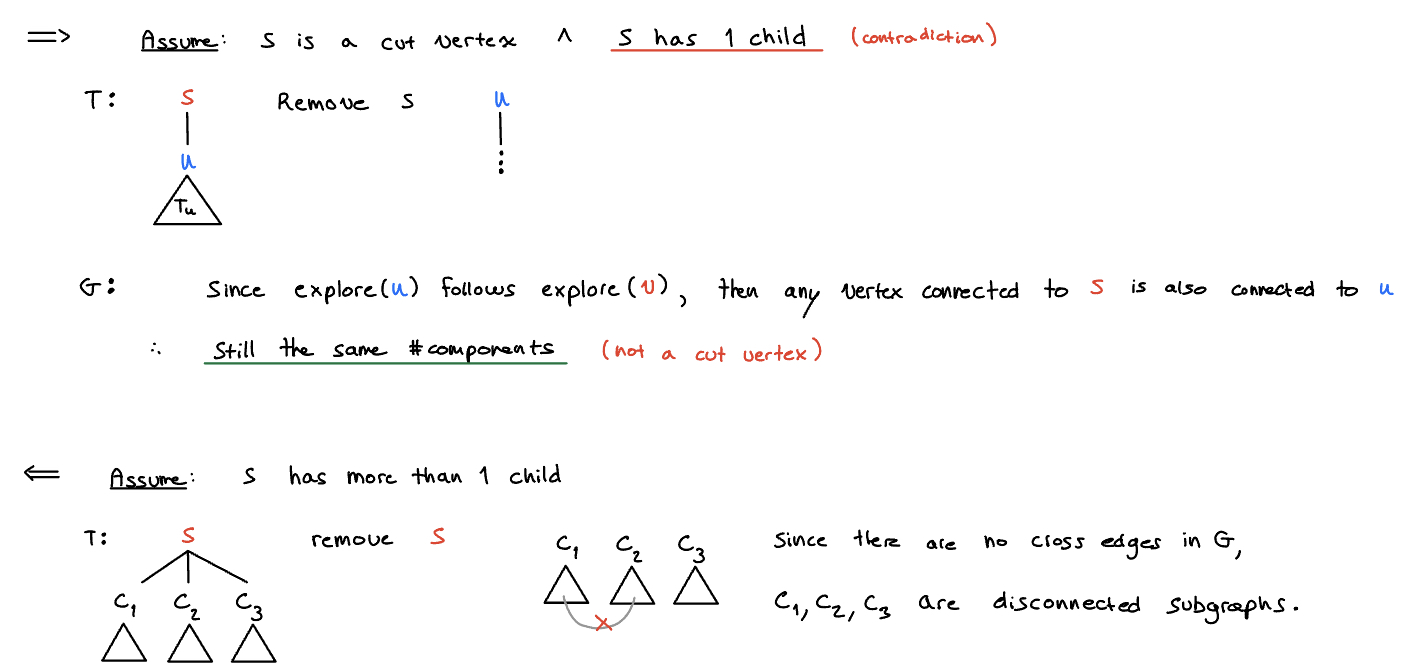 ⟹ Assume: S is a cut vertex ∧ S has 1 child (contradiction)
T: S Remove S u
u
⋮
Tu
G: Since explore(u) follows explore(v), then any vertex connected to S is also connected to u
∴ Still the same #components (not a cut vertex)
⟸ Assume: S has more than 1 child
T: S remove S C₁ C₂ C₃ Since there are no cross edges in G,
C₁ C₂ C₃ C₁, C₂, C₃ are disconnected subgraphs.